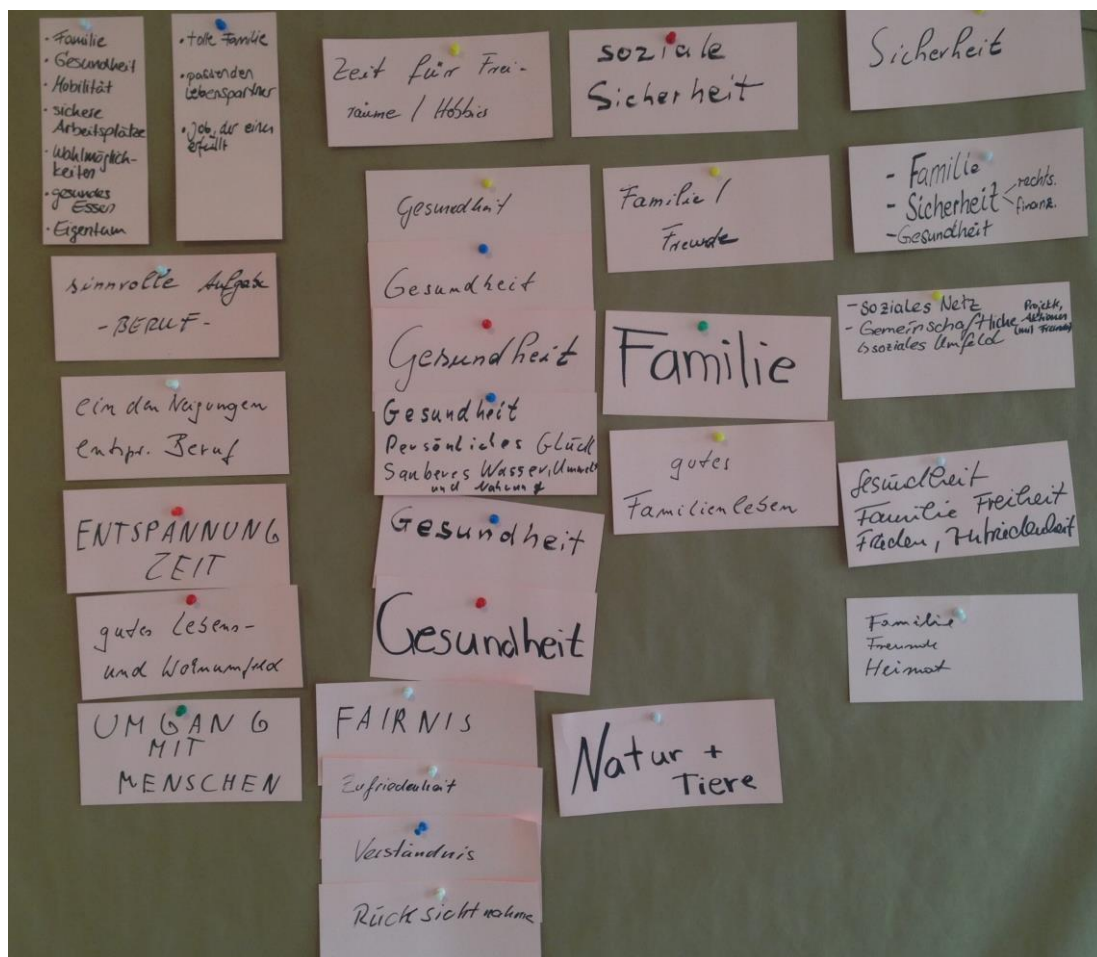 · Familie
· Gesundheit
· Mobilität
· sichere
Arbeitsplätze
· Wahlmöglich-
keiten
· gesundes
Essen
· Eigentum
· tolle Familie
· passenden
Lebenspartner
· Job, der einen
erfüllt
sinnvolle Aufgabe
- BERUF -
ein den Neigungen
entspr. Beruf
ENTSPANNUNG
ZEIT
gutes Lebens-
und Wohnumfeld
UMGANG
MIT
MENSCHEN
Zeit für Frei-
räume / Hobbies
Gesundheit
Gesundheit
Gesundheit
Gesundheit
Persönliches Glück
Sauberes Wasser, Umwelt
und Nahrung
Gesundheit
Gesundheit
FAIRNIS
Zufriedenheit
Verständnis
Rücksichtnahme
soziale
Sicherheit
Familie /
Freunde
Familie
gutes
Familienleben
Natur +
Tiere
Sicherheit
- Familie
- Sicherheit < rechts.
finanz.
- Gesundheit
- soziales Netz
- Gemeinschaftliche Projekte, Aktionen (mit Freunde)
soziales Umfeld
Gesundheit
Familie Freiheit
Frieden, Zufriedenheit
Familie
Freunde
Heimat